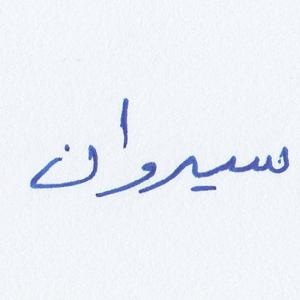 سیروان